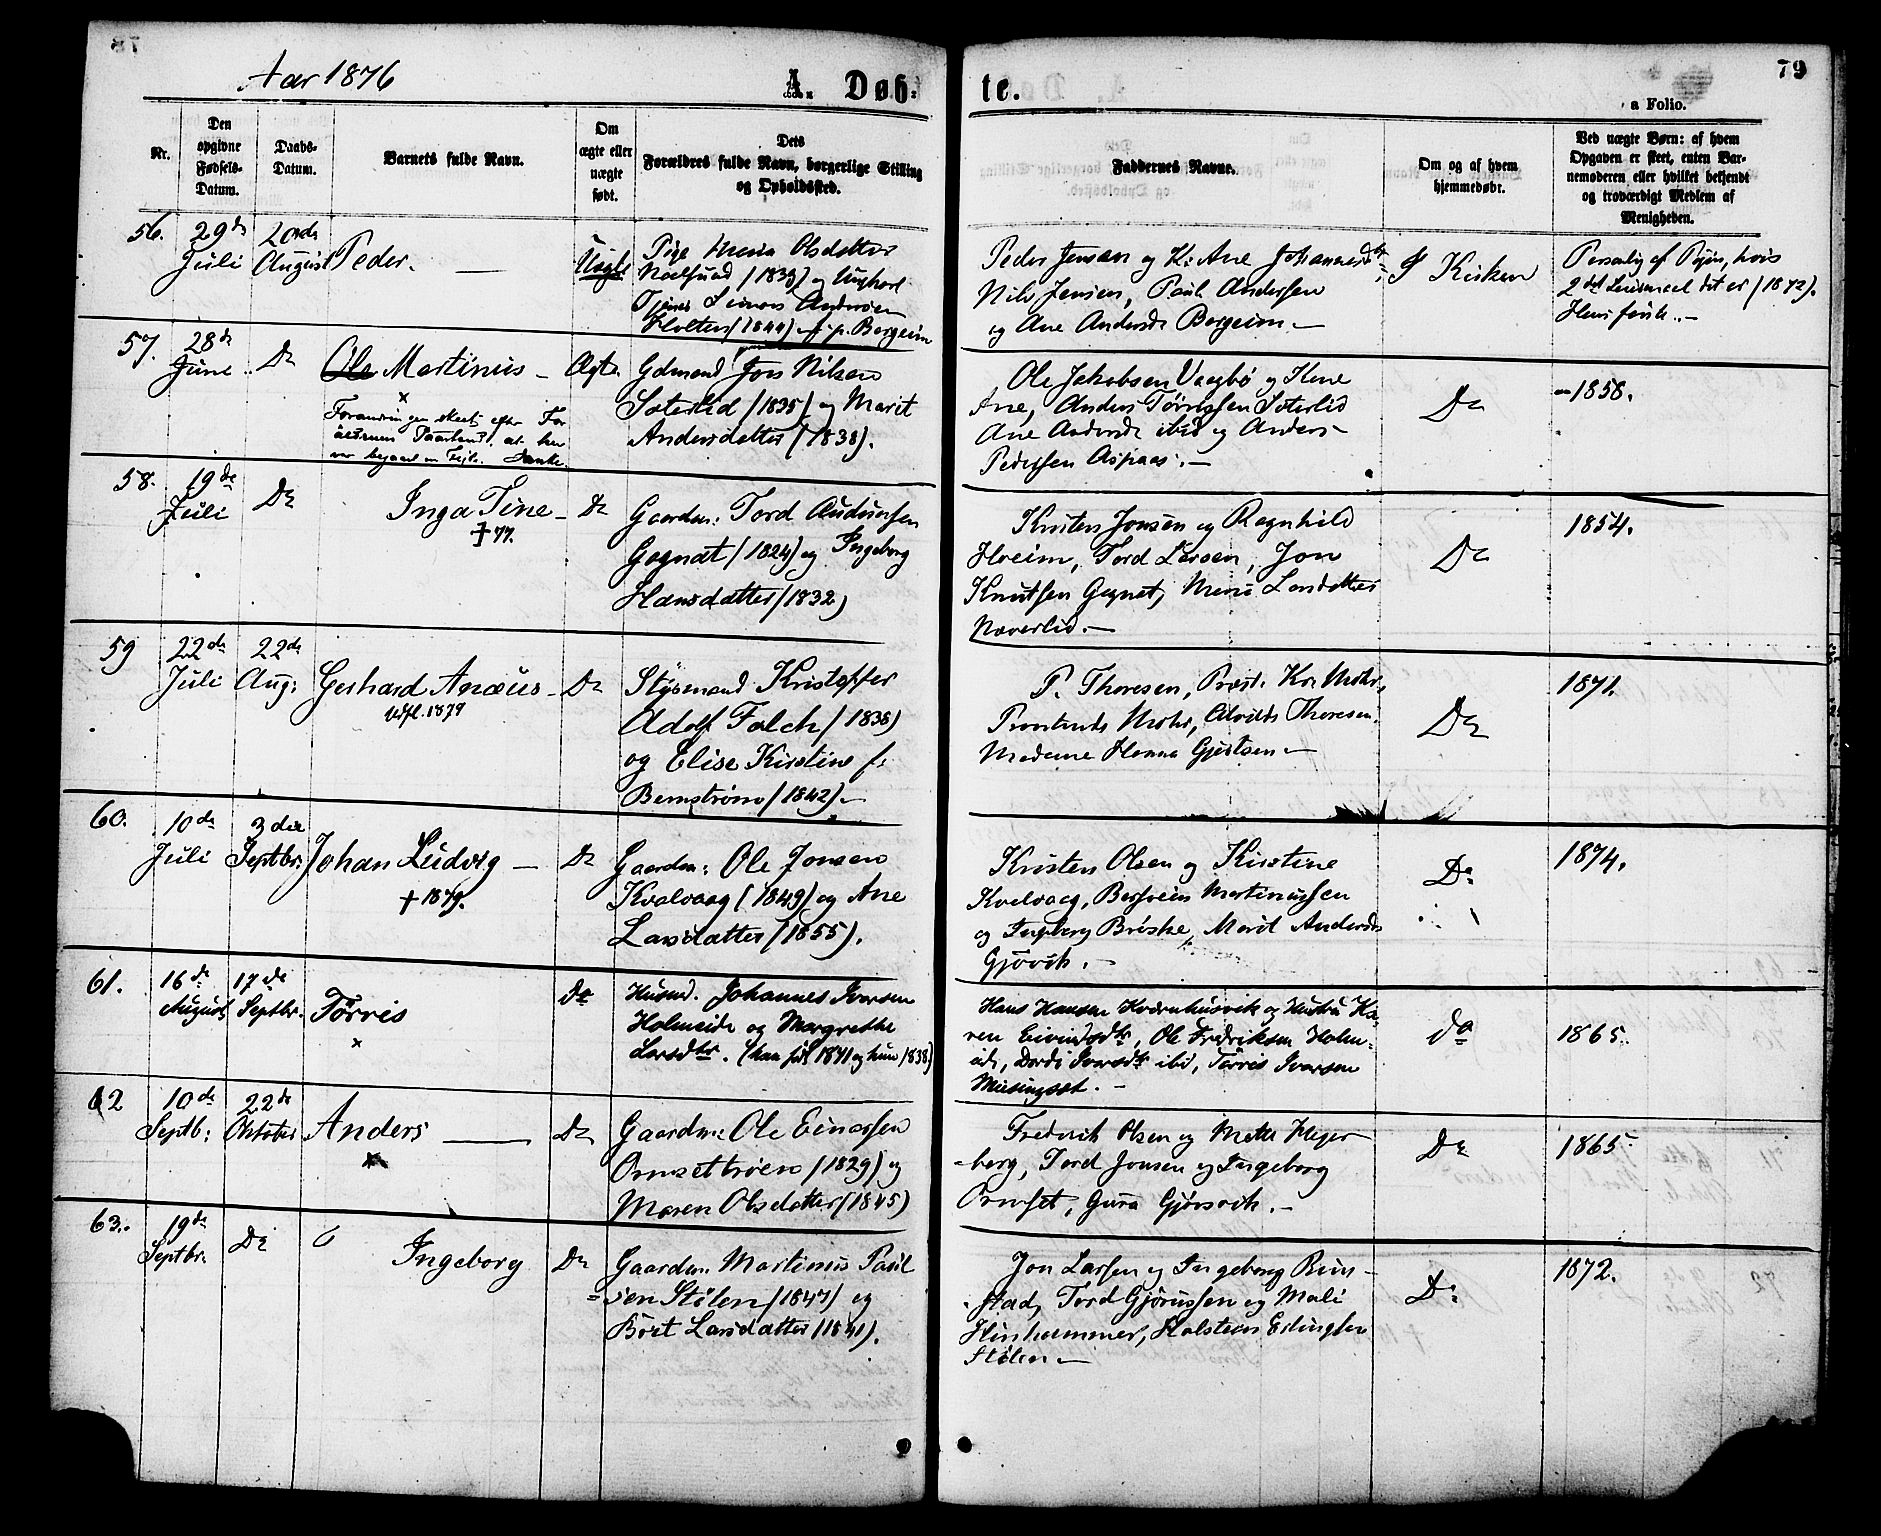 Aar 1876
A. Døb-
te.
79
a Folio.
Nr.
Den
opgivne
Fødsels-
Datum.
Daabs-
Datum.
Barnets fulde Navn.
Om
ægte eller
uægte
født.
Dets
Forældres fulde Navn, borgerlige Stilling
og Opholdssted.
Faddernes Navne.
Om og af hvem
hjemmedøbt.
Ved uægte Børn: af hvem
Opgaven er skeet, enten Bar-
nemoderen eller hvilket bekjendt
og troværdigt Medlem af
Menigheden.
56.
29de
Juli
20nde
August
Peder. —
Uægte
Pige Olsdatter
(1839) og Ungkarl
Simon Andersen
Holten (1844) Borgeim
Peder Jensen og K: Ane Johannesdtr,
Nils Jensen, Paul Andersen
og Ane Andersdr Borgeim —
I Kirken
af Pigen, hvis
2det det er (1872).
57.
28de
Juni
Do
Ole Martinus —
x
Forandringen skeet efter For
ældrenes Paastand, at her
var begaaet en Feil.
Ægte
Gdmand Jon Nilsen
Sæterlid (1835) og Marit
Andersdatter (1838).
Ole Jakobsen Vaagbø og Kone
Ane, Anders Sæterlid
Ane Andersdr ibid og Anders
Pedersen Aspaas. —
Do
1858.
58.
19de
Juli
Do
Inga Tine —
† 77.
Do
Gaardm: Tord Audunsen
Gagnat (1824) og Ingeborg
Hansdatter (1832)
Kristen Jonsen og Ragnhild
Hoeim, Tord Larsen, Jon
Knutsen Gagnat, Larsdatter
Næverlid. —
Do
1854.
59
22de
Juli
22de
Aug:
Gerhard Anæus —
Udfl. 1879
Do
Styrmand Kristoffer
Adolf Falch (1838)
og Elise Kirstine f.
Bernstrøm (1842). —
P. Thoresen, Provst. Kr. Mohr,
Mohr, Alvilde Thoresen,
Madame Hanna Gjertsen —
Do
1871.
60.
10de
Juli
3die
Septbr:
Johan Ludvig —
† 1879.
Do
Gaardm: Ole Jonsen
Kvalvaag (1849) og Ane
Larsdatter (1855).
Kristen Olsen og Kirstine
Kvalvaag, Martinussen
og Ingeborg Brøske, Marit Andersdr
Gjøvik. —
Do
1874.
61.
16de
August
17de
Septbr.
Tørris
x
do
Husmd. Johannes Ivarsen
Holmeide og Margrethe
Larsdtr. (han født 1841 og hun 1838)
Hans Hansen Kvernhusvik og Hustru Ka-
ren Eivindsdtr, Ole Fredriksen Holm-
eide, Dordi Ivarsdtr ibid, Tørris Ivarsen
Meisingset. —
do
1865.
62
10de
Septb:
22de
Oktober
Anders —
x
Do
Gaardm: Ole Einarsen
Ormsettrøen (1829) og
Maren Olsdatter (1845)
Frederik Olsen og Mette Meyer
-berg, Tord Jonsen og Ingeborg
Ormset, Guru Gjørsvik. —
Do
1865
63.
19de
Septbr.
Do
Ingeborg
Do
Gaardm. Martinus Paul
= sen Stølen (1847) og
Børet Larsdatter (1841).
Jon Larsen og Ingeborg Rim-
stad, Tord Gjørussen og Mali
Hinhammer, Halstein Erlingsen
Stølen —
Do
1872.